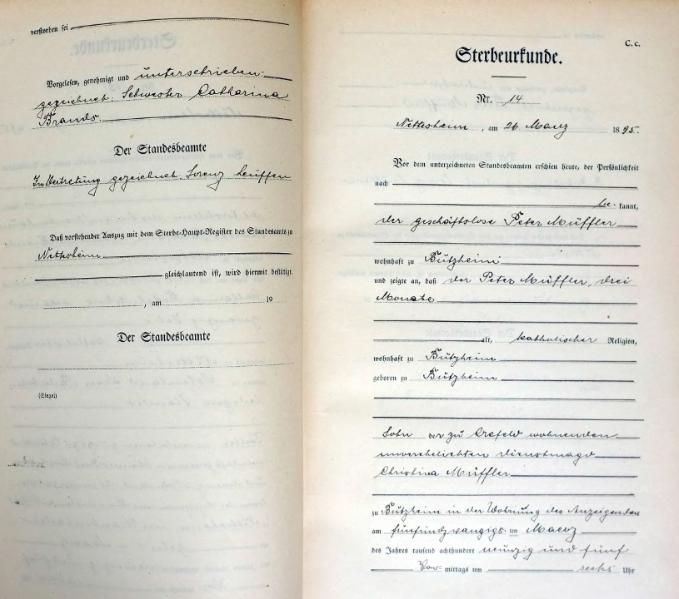 verstorben sei
Vorgelesen, genehmigt und unterschrieben
gezeichnet: Schwester Catharina
Brands.
Der Standesbeamte
In Vertretung gezeichnet. Lorenz
Daß vorstehender Auszug mit dem Sterbe-Haupt-Register des Standesamts zu
Nettesheim
gleichlautend ist, wird hiermit bestätigt.
, am 19
Der Standesbeamte
(Siegel)
C. c.
Sterbeurkunde.
Nr. 14
Nettesheim, am 26 Maerz 1895.
Vor dem unterzeichneten Standesbeamten erschien heute, der Persönlichkeit
nach
be kannt,
der geschäftslose Peter Müffler
wohnhaft zu Bützheim
und zeigte an, daß der Peter Müffler, drei
Monate
alt, katholischer Religion,
wohnhaft zu Bützheim
geboren zu Bützheim
Sohn der zu Crefeld wohnenden
unverehelichten Dienstmagd
Christina Müffler
zu Bützheim in der Wohnung des Anzeigenden
am fünfundzwanzigsten Maerz
des Jahres tausend achthundert neunzig und fünf
Vor mittags um sechs Uhr